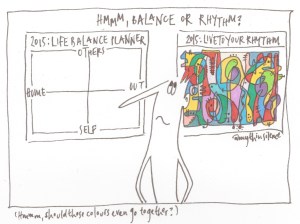 HMMM, BALANCE OR RHYTHM?
2015: LIFE BALANCE PLANNER
OTHERS
HOME
OUT
SELF
2015: LIVE TO YOUR RHYTHM
(Hmmm, should those colours even go together?)